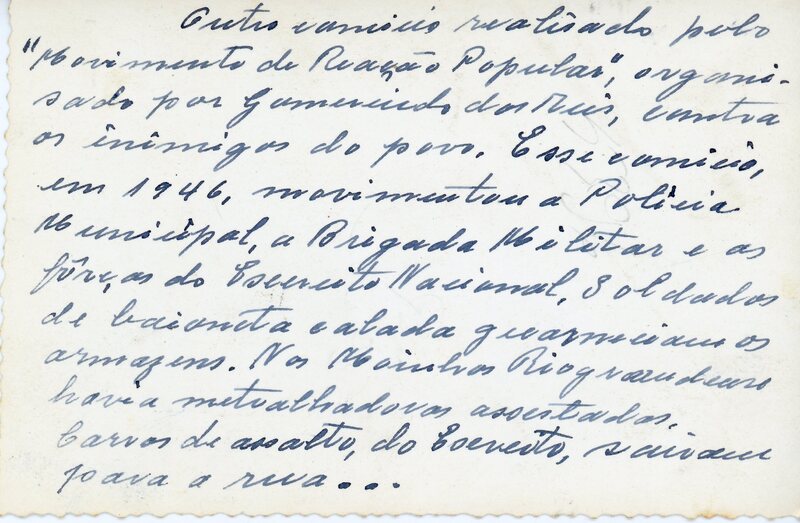 Outro comicio realisado pelo
"Movimento de Reação Popular", organi-
sado por Gomercindo dos Reis, contra
os inimigos do povo. Esse comicio,
em 1946, movimentou a Policia
Municipal, a Brigada Militar e as
fôrças do Exercito Nacional. Soldados
de baioneta calada guarneciam os
armazens. Nos Moinhos Riograndense
havia metralhadoras assestadas.
Carros de assalto, do Exercito, saíram
para a rua...